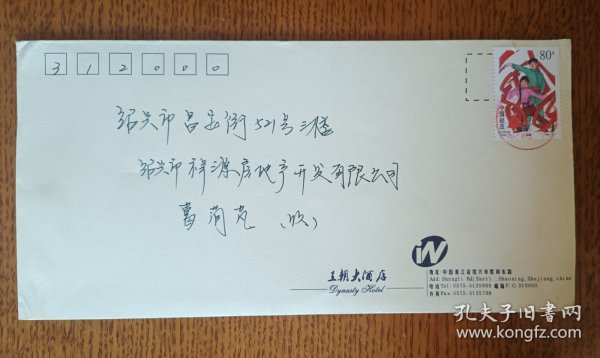 312000
80分
中国邮政
绍兴市昌安街521号三楼
绍兴市祥源房地产开发有限公司
葛 (收)
王朝大酒店
Dynasty Hotel
地址:中国浙江省绍兴市胜利东路
Add: Shengli Rd(East)., Shaoxing, Zhejiang, china
电话Tel: 0575-5135888 邮编P.C: 312000
传真Fax: 0575-5135798
孔夫子旧书网
www.kongfz.com